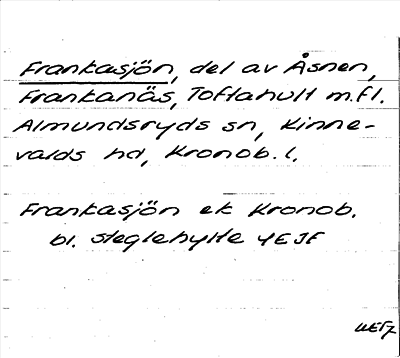 Frankasjön, del av Åsnen,
Frankanäs, Toftahult m.fl.
Almundsryds sn, Kinne-
valds hd, Kronob. l.
Frankasjön ek Kronob.
bl. Steglehylte 4E JF